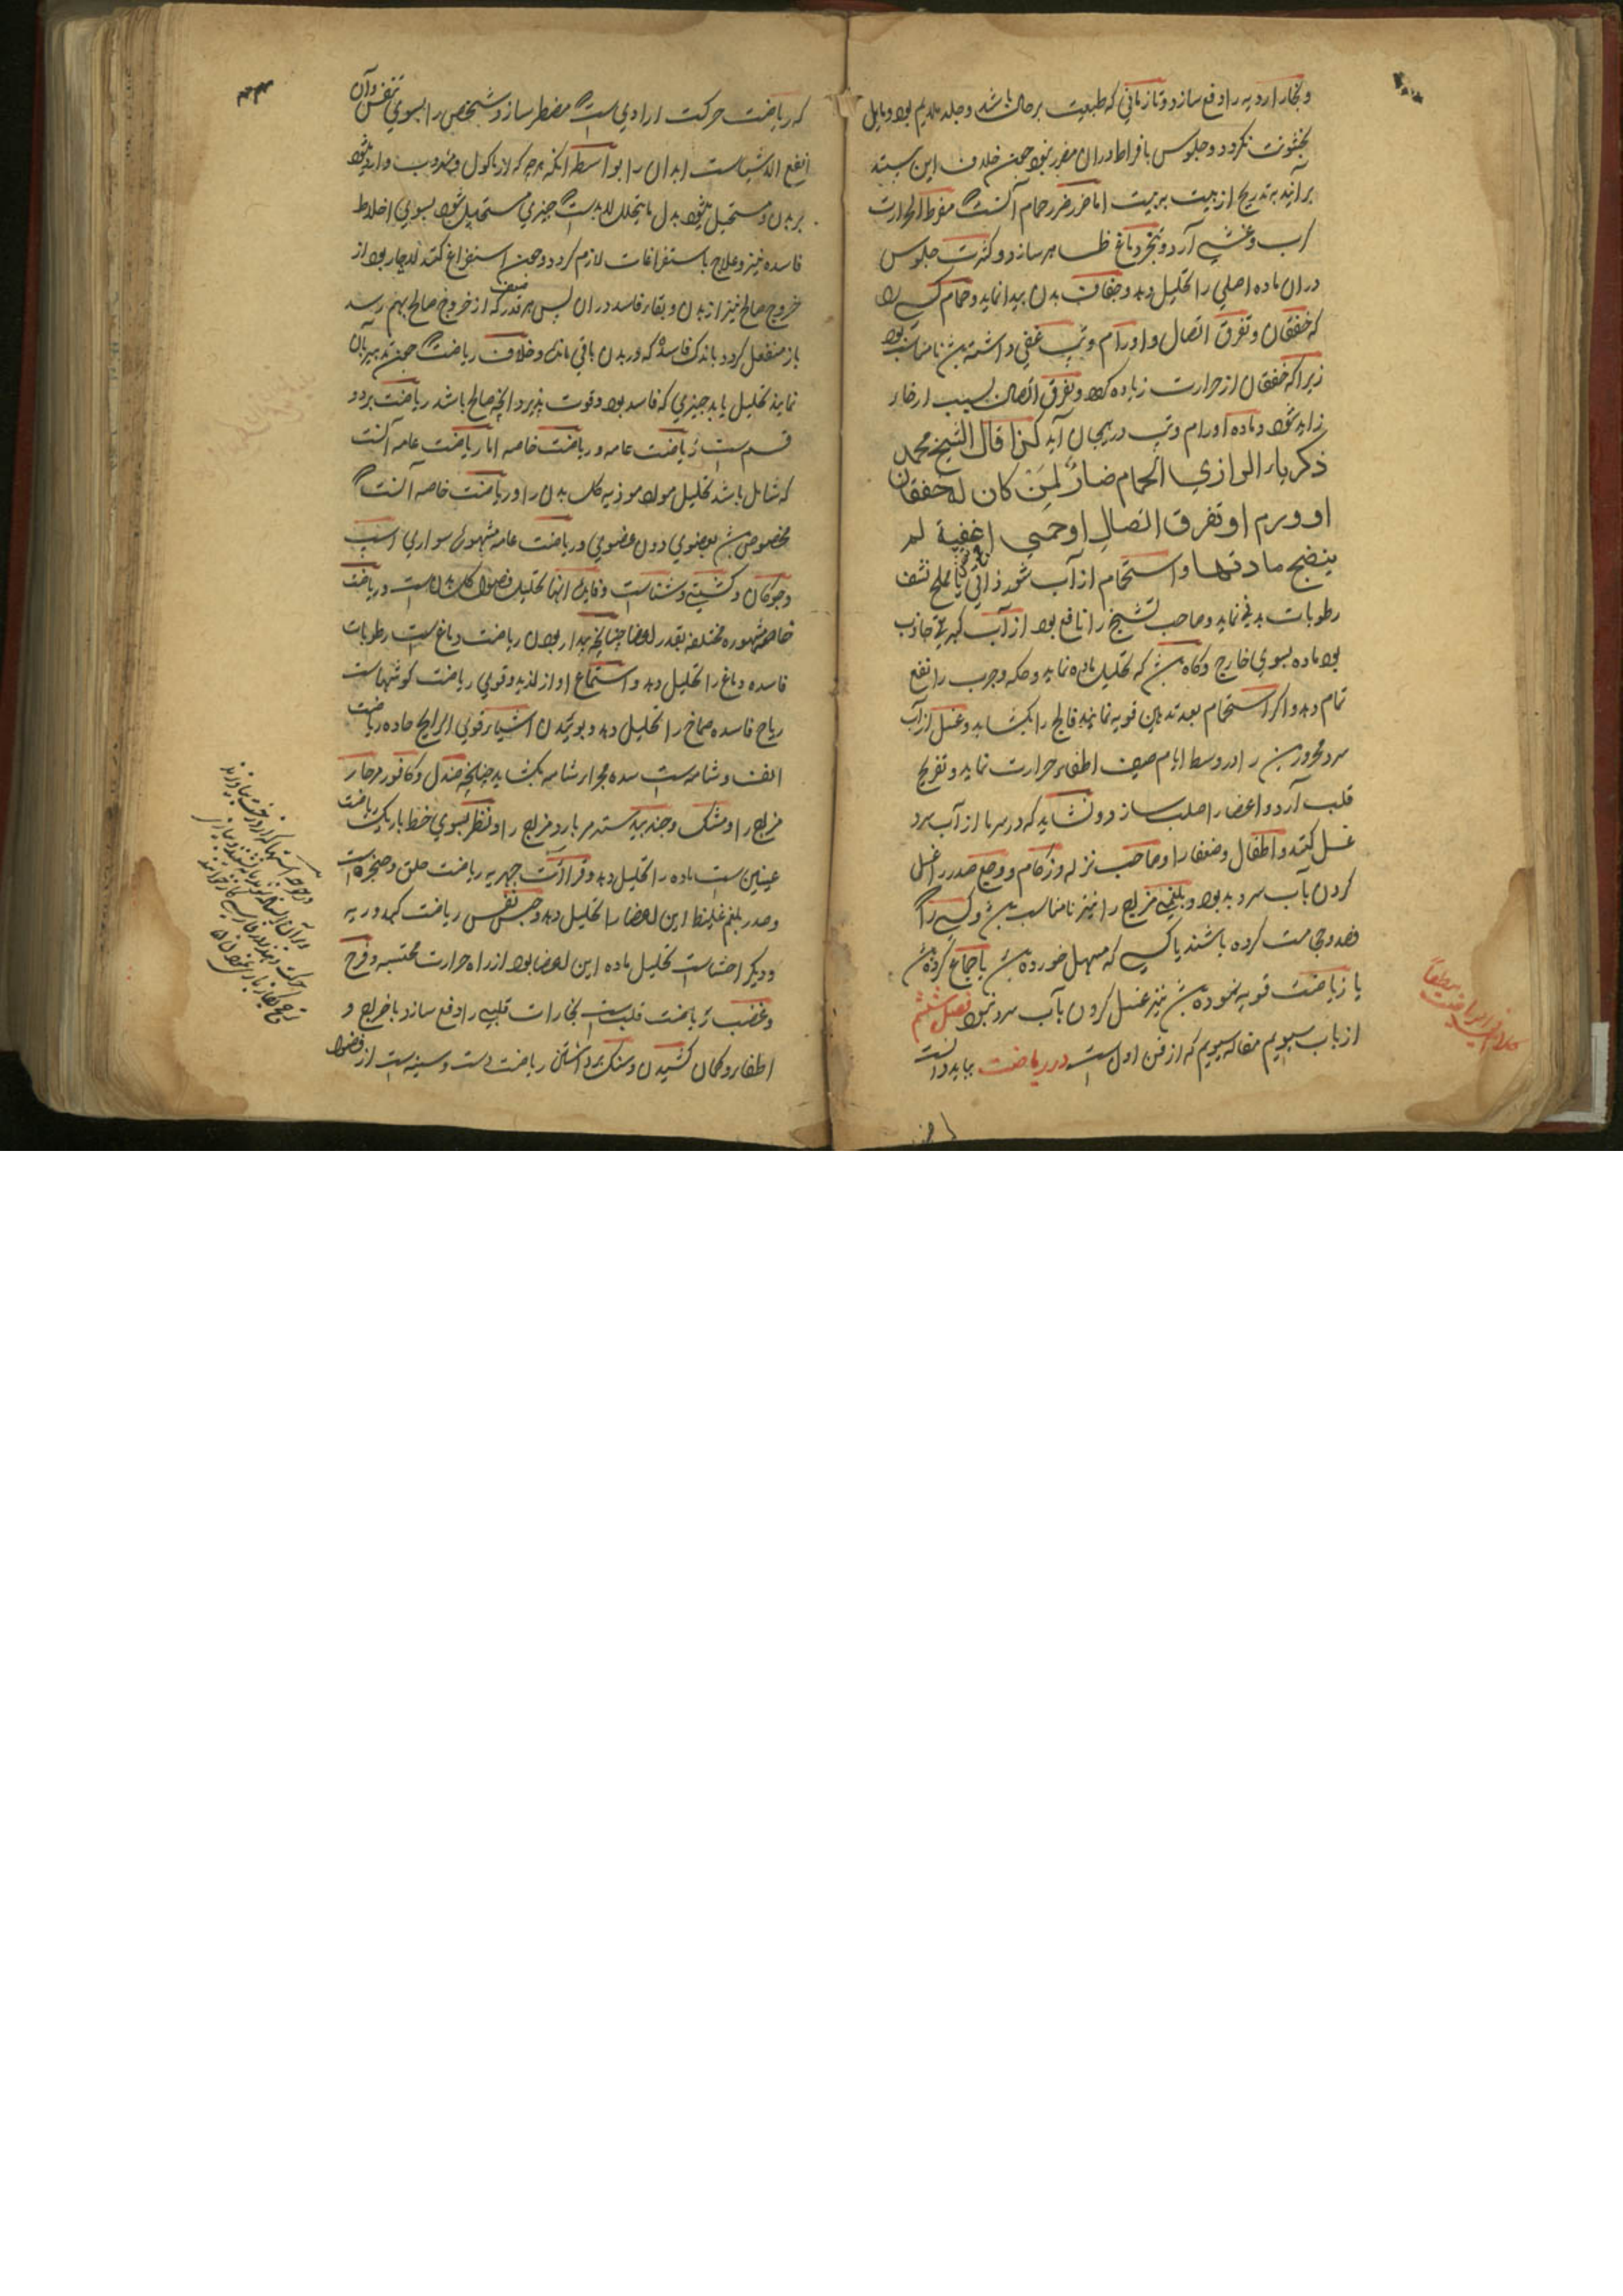 و بخار ادویه را دفع سازد و تا زمانی که طبیعت بر حال باشد و جلد ملایم بود و مایل
بخشونت نگردد و جلوس بافراط دران مضر بود چون خلاف این بیند
برآیند بتدریج از بیت به بیت اما ضرر حمام آنست مفرط الحرارت
کرب و غشی آرد و تبخر دماغ ظاهر سازد و کثرت جلوس
دران ماده اصلی را تحلیل دهد و جفاف بدن پیدا نماید و حمام کسی را
که خفقان و تفرق اتصال و اورام و تب عفنی داشته باشد نامناسب بود
زیرا که خفقان از حرارت زیاده گردد و تفرق اتصال بسبب ارخاء
زاید شود و ماده اورام و تب در هیجان آید کذا قال الشیخ محمد
ذکریاء الرازی الحمام ضارٌ لِمَن کان له خفقان
او ورم او تفرق اتصالِ او حمی عفنیة لم
ینضج مادتها و استحمام از آب شور ذاتی یا بملح نشف
رطوبات بدنی نماید و صاحب تشنج را نافع بود از آب کبریتی جاذب
بود ماده بسوی خارج و گاه باشد که تحلیل ماده نماید و حکه و جرب را نفع
تمام دهد و اگر استحمام بعد تدهین قویه نمایند فالج را بگشاید و غسل از آب
سرد محرورین را در وسط ایام صیف اطفاء حرارت نماید و تفریح
قلب آرد و اعضا را صلب سازد و نشاید که در سرما از آب سرد
غسل کنند و اطفال و ضعفا را و صاحب نزله و زکام و وجع صدر را غسل
کردن بآب سرد بد بود و بلغمی مزاج را نیز نامناسب باشد و کسی را که
فصد و حجامت کرده باشند یا کسی که مسهل خورده باشد یا جماع کرده باشد
یا ریاضت قویه نموده باشد نیز غسل کردن بآب سرد نبود فصل ششم
از باب سیوم مقاله سیوم که از فن اول است در ریاضت بباید دانست
که ریاضت حرکت ارادی است که مضطر سازد شخص را بسوی تنفس و آن
انفع الاشیاست ابدان را بواسطه آنکه هرچه که از ماکول و مشروب وارد شود
بر بدن و مستحیل شود بدل ما یتحلل لابد است که چیزی مستحیل شود بسوی اخلاط
فاسده نیز و علاج باستفراغات لازم گردد و چون استفراغ کنند لاچار بود از
خروج صالح نیز از بدن و بقاء فاسد دران پس هر قدر ضعف که از خروج صالح بهم رسد
باز منفعل گردد باندک فاسد که در بدن باقی ماند و خلاف ریاضت که چون تدبیر بآن
نمایند تحلیل یابد چیزی که فاسد بود و قوت پذیرد آنچه صالح باشد ریاضت بر دو
قسم ست ریاضت عامه و ریاضت خاصه اما ریاضت عامه آنست
که شامل باشد تحلیل مواد موذیه کل بدن را و ریاضت خاصه آنست که
مخصوص باشد بعضوی دون عضوی و ریاضت عامه مشهوره سواری اسب
و چوگان و کشتی و شناست و فایده اینها تحلیل فضول کل بدنست و ریاضت
خاصه مشهوره مختلفه بقدر اعضا چنانچه بیدار بودن ریاضت دماغ ست رطوبات
فاسده دماغ را تحلیل دهد و استماع آواز لذیذ و قوی ریاضت گوشهاست
ریاح فاسده صماخ را تحلیل دهد و بوئیدن اشیاء قوی الرایحه حاده ریاضت
انف و شامه است سده مجرا شامه بگشاید چنانچه صندل و کافور مر حار
مزاج را و مشک و جندبیدستر مر بارد مزاج را و نظر بسوی خط باریک ریاضت
عینین ست ماده را تحلیل دهد و قراءت جهریه ریاضت حلق و حنجره است
و صدر بلغم غلیظ این اعضا را تحلیل دهد و حبس نفس ریاضت کبد و ریه
و دیگر احشاست تحلیل ماده این اعضا بود از راه حرارت محتبسه و فرح
و غضب ریاضت قلب ست بخارات قلبیه را دفع سازد باخراج و
اطفاء و کمان کشیدن و سنگ برداشتن ریاضت دست و سینه است از فضول